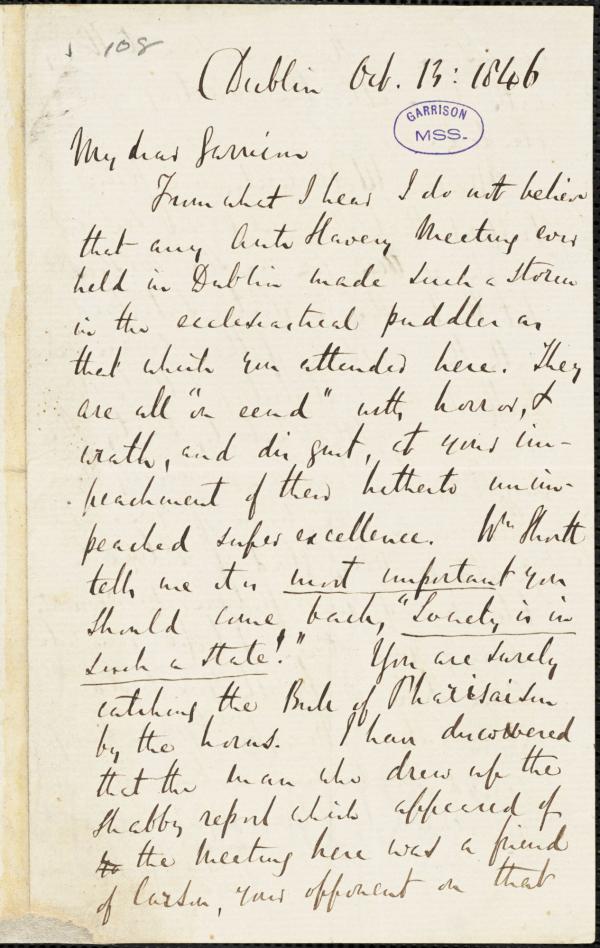 108
Dublin Oct. 13: 1846
GARRISON
MSS.
My dear Garrison
From what I hear I do not believe
that any Anti Slavery Meeting ever
held in Dublin made such a storm
in the ecclesiastical puddles as
that which you attended here. They
are all "on eend" with horror, &
wrath, and disgust, at your im-
peachment of their hitherto unim-
peached super excellence. Wm Shortt
tells me it is most important you
should come back, "Society is in
such a state!" You are surely
catching the Bull of Pharisaism
by the horns. I have discovered
that the man who drew up the
shabby report which appeared of
the Meeting here was a friend
of Carson, your opponent on that